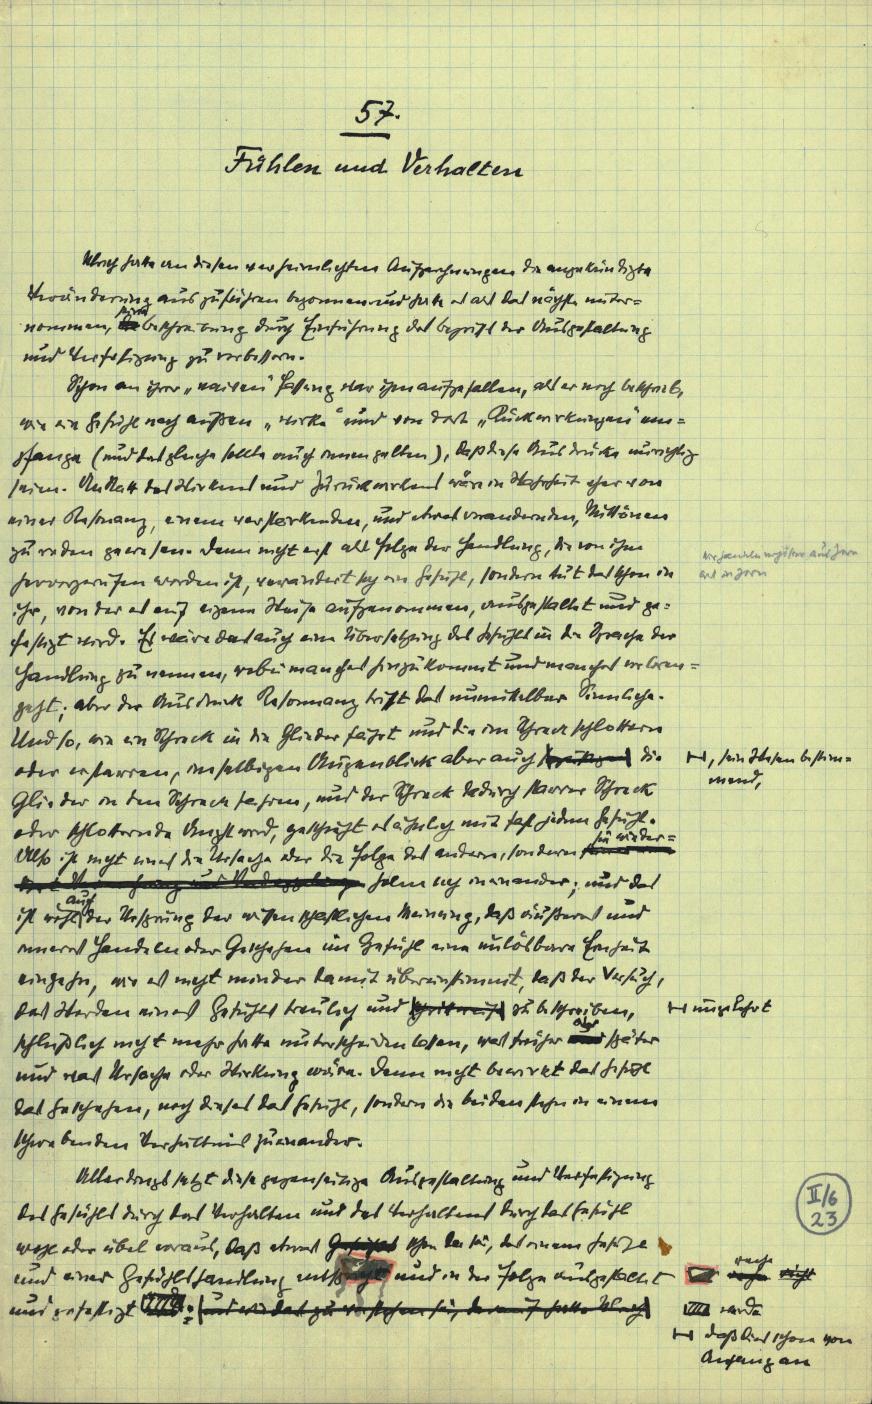 57.
Fühlen und Verhalten
Ulrich hatte an diesen verheimlichten Aufzeichnungen die angekündigte
Veränderung auszuführen begonnen und hatte es als das nächste unter=
nommen, Beschreibung durch Einführung des Begriffs der Ausgestaltung
und Verfestigung zu verbessern.
Schon an ihrer „naiven" Fassung war ihm aufgefallen, als er noch beschrieb,
wie ein Gefühl nach außen „wirke" und von dort „Rückwirkungen" em=
pfange (und das gleiche sollte auch innen gelten), daß diese Ausdrücke unrichtig
seien. Anstatt des Wirkens und Zurückwirkens wäre in Wahrheit eher von
einer Resonanz, einem verstärkenden, und etwas verändernden, Mittönen
zu reden gewesen. Denn nicht erst als Folge der Handlung, die von ihm
hervorgerufen worden ist, verändert sich ein Gefühl, sondern tut das schon in
ihr, von der es auf eigene Weise aufgenommen, ausgestaltet und ge=
festigt wird. Es wäre das auch eine Übersetzung des Gefühls in die Sprache der
Handlung zu nennen, wobei manches hinzukommt und manches verloren=
geht; aber der Ausdruck Resonanz trifft das unmittelbar Sinnliche.
Und so, wie ein Schreck in die Glieder fährt und die im Schreck schlottern
oder erstarren, im selbigen Augenblick aber auch die
⊢⊣, sein Wesen bestim=
mend,
Glieder in den Schreck fahren, und der Schreck dadurch starrer Schreck
oder schlotternde Angst wird, geschieht es ähnlich mit fast jedem Gefühl.
Also ist nicht eines die Ursache oder die Folge des andern, sondern
ineinander; und das
ist wohl auch der Ursprung der wissenschaftlichen Meinung, daß äußeres und
inneres Handeln oder Geschehen im Gefühl eine unlösbare Einheit
eingehn, wie es nicht minder damit übereinstimmt, daß der Versuch,
das Werden eines Gefühls treulich und zu beschreiben,
schließlich nicht mehr hatte unterscheiden lassen, was früher oder später
und was Ursache oder Wirkung wäre. Denn nicht bewirkt das Gefühl
das Geschehen, noch dieses das Gefühl, sondern die beiden stehn in einem
schwebenden Verhältnis zueinander.
Allerdings setzt diese gegenseitige Ausgestaltung und Verfestigung
des Gefühls durch das Verhalten und des Verhaltens durch das Gefühl
wohl oder übel voraus, daß etwas schon da sei, das einem Gefühle
und einer Gefühlshandlung und in der Folge ausgestaltet
und gefestigt
werde
⊢⊣ daß dies schon von
Anfang an
II/6
23